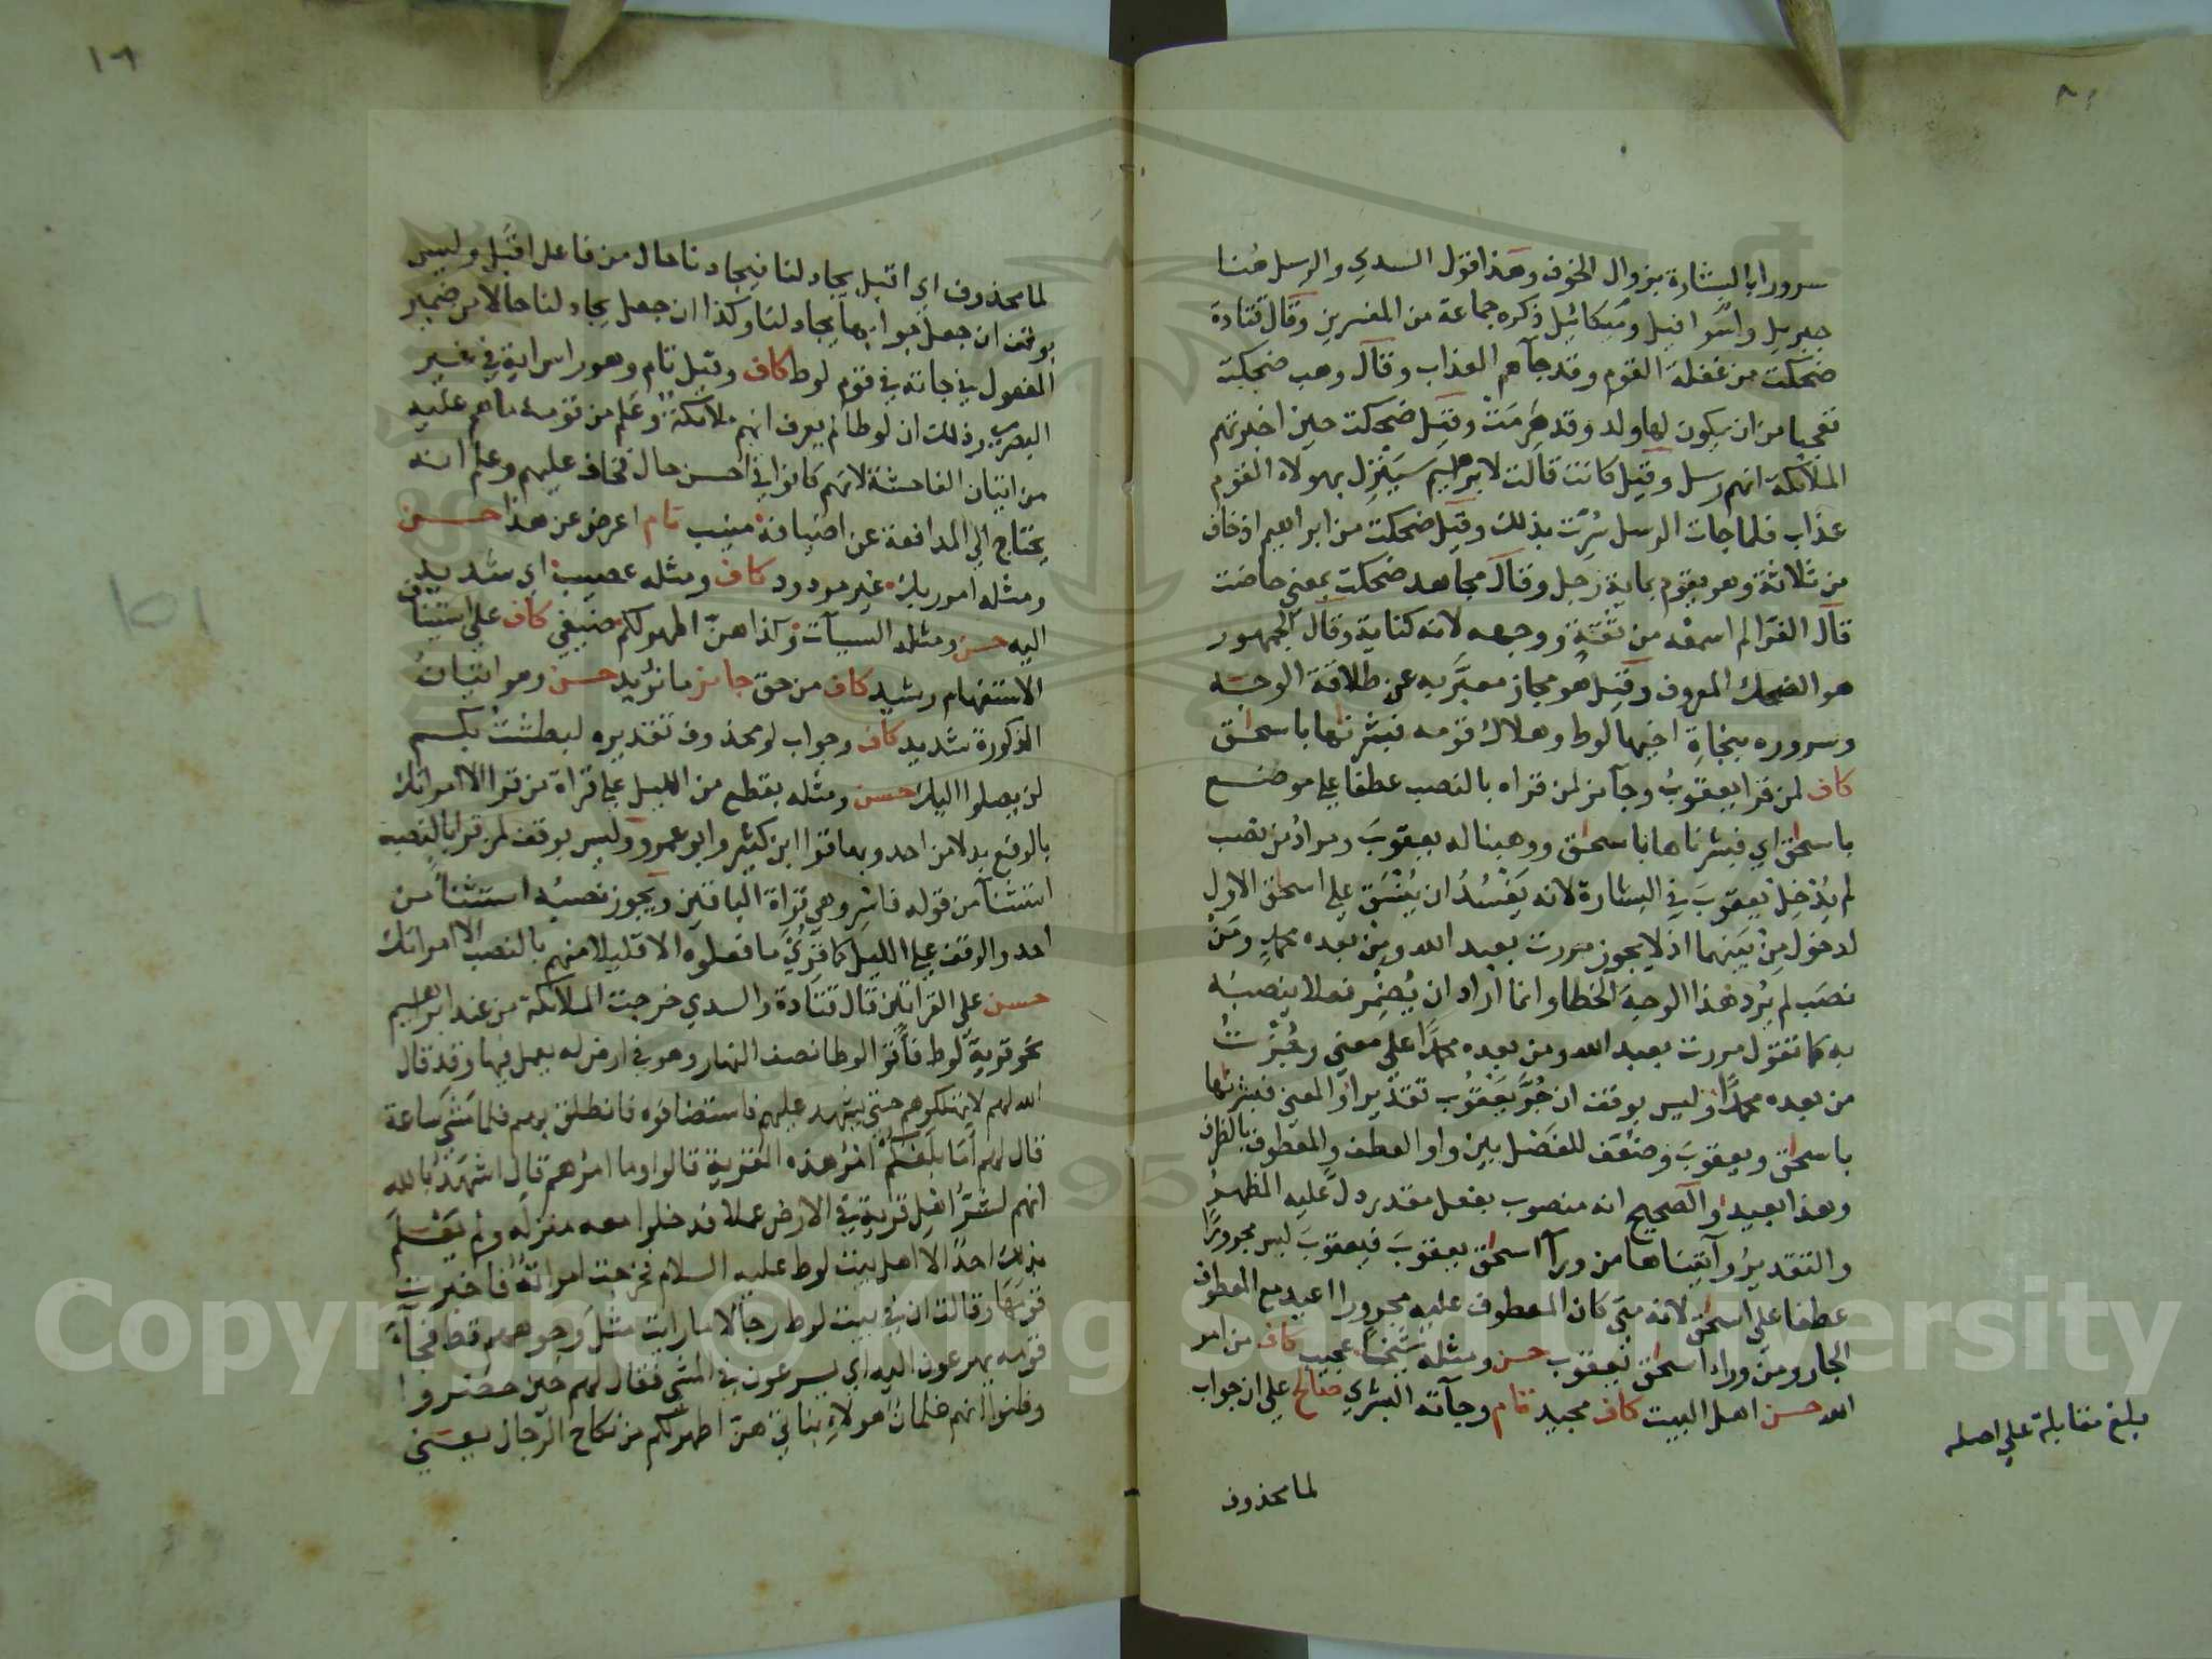 سرورا بالبشارة بزوال الخوف وهذا قول السدي والرسل هنا
جبريل واسرافيل وميكائيل ذكره جماعة من المفسرين وقال قتادة
ضحكت من غفلة القوم وقد جآهم العذاب وقال وهب ضحكت
تعجبا من ان يكون لها ولد وقد هَرِمَتْ وقيل ضحكت حين اخبرتهم
الملائكة انهم رسل وقيل كانت قالت لابرهيم سَيَنْزِل بهولاء القوم
عذاب فلما جات الرسل سُرّت بذلك وقيل ضحكت من ابراهيم اذ خاف
من ثلاثة وهو يقوم بماية رجل وقال مجاهد ضحكت بمعني حاضت
قال الفرّا لم اسمعْه من ثقةٍ ووجهه لانه كناية وقال الجمهور
هو الضحك المعروف وقيل هُو مجاز معبَّر به عن طلاقة الوجه
وسروره بنجاةِ اخيها لوط وهلاك قومه فبشرناها باسحق
كاف لمن قرا يعقوبُ وجآئز لمن قراه بالنصب عطفا علي موضع
باسحق اي فبشرناها باسحق ووهبنا له يعقوبَ ومرادُ من نصب
لم يُدْخِلْ يعقوبَ في البشارة لانه يَفْسُدُ ان يُنْسَق علي اسحق الاول
لدخول مِنْ بينهما اذ لا يجوز مررت بعبد الله ومِنْ بعده محمدٍ ومَنْ
نصَب لم يُرد هذا الوجهَ الخطا وانما اراد ان يُضْمِر فعلا ينصبُه
به كما تقول مررت بعبد الله ومن بعده محمدًا علي معني وجُزْتُ
من بعده محمدًا وليس بوقف ان جُرَّ يَعْقُوب تقديرا والمعني فبشرناها
باسحق ويعقوبَ وضعّف للفصْل بين واو العطف والمعطوف بالظرف
وهذا بعيد والصحيح انه منصوب بفعل مقدر دلّ عليه المظهرُ
والتقديرُ وآتيناها من ورآ اسحق يعقوبَ فيعقوبَ ليس مجرورًا
عطفا علي اسحق لانه متي كان المعطوف عليه مجرورا اعيد مع المعطوف
الجار ومِن وراء اسحق يعقوب حسن ومثله شيخا عجيب كاف من امر
الله حسن اهل البيت كاف مجيد تام وجآته البشري صالح علي ان جواب
لما محذوف
بلغ مقابلة علي اصله
١٠٩
لما محذوف اي اقبل يجادلنا فيجادلنا حال من فاعل اقبل وليس
بوقف ان جعل جوابها يجادلنا وكذا ان جعل يجادلنا حالا من ضمير
المفعول في جاته في قوم لوط كاف وقيل تام وهو راس اية في غير
البصري وذلك ان لوطا لم يعرف انهم ملائكةٌ وعلم من قومه ما هم عليه
من اتيان الفاحشة لانهم كانوا في احسن حال فخاف عليهم وعلم انه
يحتاج الي المدافعة عن اضيافه منيب تام اعرض عن هذا حسن
ومثله امر ربك غير مردود كاف ومثله عصيب اي شديد
اليه حسن ومثله السيآت وكذا هنّ اطهر لكم ضيفي كاف علي استيناف
الاستفهام رشيد كاف من حق جايز ما نريد حسن وهو اتيانُ
الذكورة شديد كاف وجواب لو محذوف تقديره لبطشت بكم
لن يصلوا اليك حسن ومثله بقطع من الليل علي قراة من قرا الا امراتك
بالرفع بدلا من احد وبها قرا ابن كثير وابو عمرو وليس بوقف لمن قرا بالنصب
استثنآ من قوله فاسر وهي قراة الباقين ويجوز نصبُه استثنآ من
احد والوقف علي الليل كما قُرِئ ما فعلوه الا قليلا منهم بالنصب الا امراتك
حسن علي القراتين قال قتادة والسدي خرجت الملائكة من عند ابرهيم
نحو قرية لوط فأتوا لوطا نصف النهار وهو في ارض له يعمل فيها وقد قال
الله لهم لا تهلكوهم حتي يشهد عليهم فاستضافوه فانطلق بهم فلما مشي ساعة
قال لهم أمَا بلَغكُم امرُ هذه القرية قالوا وما امرُهم قال اشهدُ بالله
انهم لشرّ اهل قرية في الارض عملا فدخلوا معه منزله ولم يَعْلَم
بذلك احدٌ الا اهل بيت لوط عليه السلام فخرجت امراتُه فاخبرت
قومَها وقالت ان في بيت لوط رجالا ما رايت مثل وجوههم قط فجآءَ
قومه يهرعون اليه اي يسرعون في المشي فقال لهم حين حضروا
وظنوا انهم غلمان هولاءِ بناتي هنّ اطهر لكم من نكاح الرجال يعني
Copyright © King Saud University